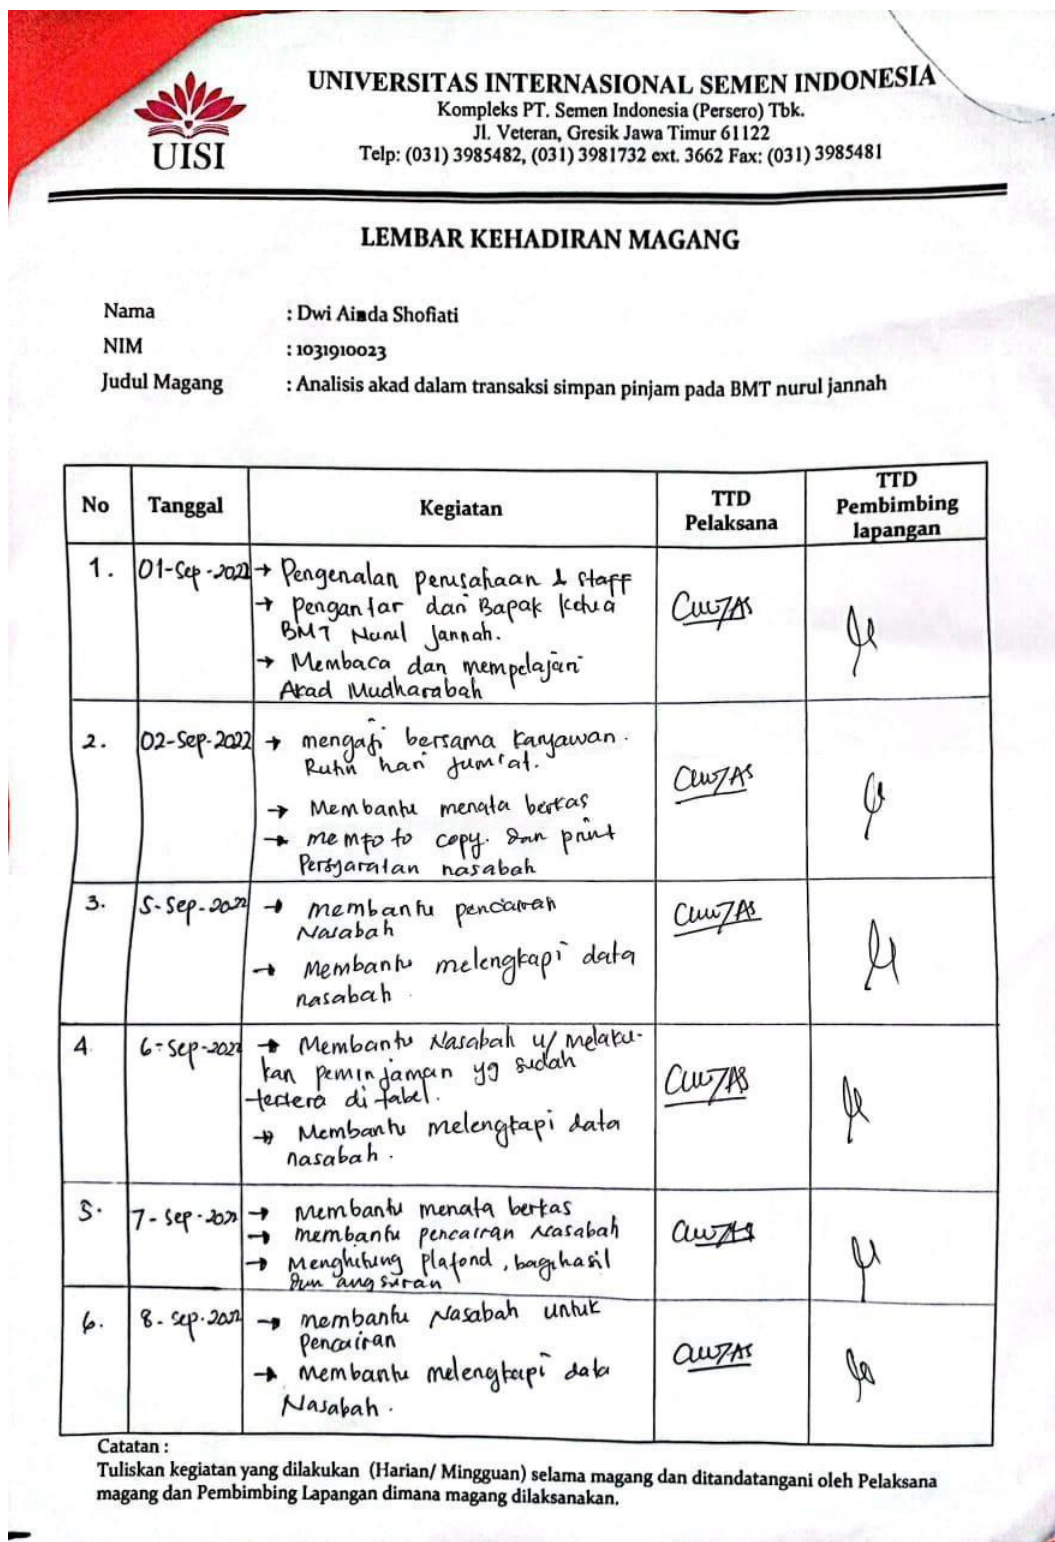 UISI
UNIVERSITAS INTERNASIONAL SEMEN INDONESIA
Kompleks PT. Semen Indonesia (Persero) Tbk.
Jl. Veteran, Gresik Jawa Timur 61122
Telp: (031) 3985482, (031) 3981732 ext. 3662 Fax: (031) 3985481
LEMBAR KEHADIRAN MAGANG
Nama : Dwi Ainda Shofiati
NIM : 1031910023
Judul Magang : Analisis akad dalam transaksi simpan pinjam pada BMT nurul jannah
No Tanggal Kegiatan TTD Pelaksana TTD Pembimbing lapangan
1. 01-Sep-2022 → Pengenalan perusahaan & staff
→ pengantar dari Bapak Ketua
BMT Nurul Jannah.
→ Membaca dan mempelajari
Akad Mudharabah
2. 02-Sep-2022 → mengaji bersama karyawan.
Rutin hari jum'at.
→ Membantu menata berkas
→ memfoto copy. dan print
Persyaratan nasabah
3. 5-Sep-2022 → membantu pencairan
Nasabah
→ Membantu melengkapi data
nasabah.
4. 6-Sep-2022 → Membantu Nasabah u/ melaku-
kan peminjaman yg sudah
tertera di tabel.
→ Membantu melengkapi data
nasabah.
5. 7-Sep-2022 → membantu menata berkas
→ membantu pencairan Nasabah
→ Menghitung plafond, bagihasil
dan angsuran
6. 8-Sep-2022 → membantu Nasabah untuk
Pencairan
→ Membantu melengkapi data
Nasabah.
Catatan :
Tuliskan kegiatan yang dilakukan (Harian/ Mingguan) selama magang dan ditandatangani oleh Pelaksana
magang dan Pembimbing Lapangan dimana magang dilaksanakan.